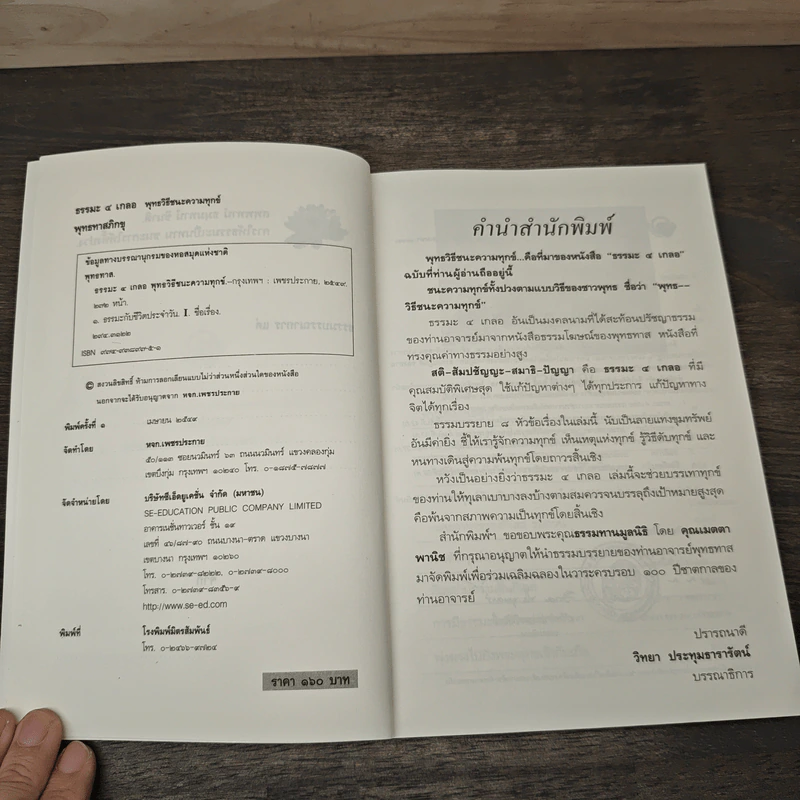 ธรรมะ ๔ เกลอ พุทธวิธีชนะความทุกข์
พุทธทาสภิกขุ
ข้อมูลทางบรรณานุกรมของหอสมุดแห่งชาติ
พุทธทาส.
ธรรมะ ๔ เกลอ พุทธวิธีชนะความทุกข์.--กรุงเทพฯ : เพชรประกาย, ๒๕๔๙.
๒๗๒ หน้า.
๑. ธรรมะกับชีวิตประจำวัน. I. ชื่อเรื่อง.
๒๙๔.๓๑๒๒
ISBN
© สงวนลิขสิทธิ์ ห้ามการลอกเลียนแบบไม่ว่าส่วนหนึ่งส่วนใดของหนังสือ
นอกจากจะได้รับอนุญาตจาก หจก.เพชรประกาย
พิมพ์ครั้งที่ ๑ เมษายน ๒๕๔๙
จัดทำโดย หจก.เพชรประกาย
๕๐/๑๑๓ ซอยนวมินทร์ ๖๓ ถนนนวมินทร์ แขวงคลองกุ่ม
เขตบึงกุ่ม กรุงเทพฯ ๑๐๒๔๐ โทร. ๐-๑๘๗๕-๗๘๗๗
จัดจำหน่ายโดย บริษัทซีเอ็ดยูเคชั่น จำกัด (มหาชน)
SE-EDUCATION PUBLIC COMPANY LIMITED
อาคารเนชั่นทาวเวอร์ ชั้น ๑๙
เลขที่ ๔๖/๘๗-๙๐ ถนนบางนา-ตราด แขวงบางนา
เขตบางนา กรุงเทพฯ ๑๐๒๖๐
โทร. ๐-๒๗๓๙-๘๒๒๒, ๐-๒๗๓๙-๘๐๐๐
โทรสาร. ๐-๒๗๓๙-๘๓๕๖-๙
http://www.se-ed.com
พิมพ์ที่ โรงพิมพ์มิตรสัมพันธ์
โทร. ๐-๒๔๖๖-๙๗๒๔
ราคา ๑๖๐ บาท
คำนำสำนักพิมพ์
พุทธวิธีชนะความทุกข์...คือที่มาของหนังสือ “ธรรมะ ๔ เกลอ”
ฉบับที่ท่านผู้อ่านถืออยู่นี้
ชนะความทุกข์ทั้งปวงตามแบบวิธีของชาวพุทธ ชื่อว่า “พุทธ--
วิธีชนะความทุกข์”
ธรรมะ ๔ เกลอ อันเป็นมงคลนามที่ได้สะท้อนปรัชญาธรรม
ของท่านอาจารย์มาจากหนังสือธรรมโฆษณ์ของพุทธทาส หนังสือที่
ทรงคุณค่าทางธรรมอย่างสูง
สติ-สัมปชัญญะ-สมาธิ-ปัญญา คือ ธรรมะ ๔ เกลอ ที่มี
คุณสมบัติพิเศษสุด ใช้แก้ปัญหาต่างๆ ได้ทุกประการ แก้ปัญหาทาง
จิตได้ทุกเรื่อง
ธรรมบรรยาย ๘ หัวข้อเรื่องในเล่มนี้ นับเป็นลายแทงขุมทรัพย์
อันมีค่ายิ่ง ชี้ให้เรารู้จักความทุกข์ เห็นเหตุแห่งทุกข์ รู้วิธีดับทุกข์ และ
หนทางเดินสู่ความพ้นทุกข์โดยถาวรสิ้นเชิง
หวังเป็นอย่างยิ่งว่าธรรมะ ๔ เกลอ เล่มนี้จะช่วยบรรเทาทุกข์
ของท่านให้ทุเลาเบาบางลงบ้างตามสมควรจนบรรลุถึงเป้าหมายสูงสุด
คือพ้นจากสภาพความเป็นทุกข์โดยสิ้นเชิง
สำนักพิมพ์ฯ ขอขอบพระคุณธรรมทานมูลนิธิ โดย คุณเมตตา
พานิช ที่กรุณาอนุญาตให้นำธรรมบรรยายของท่านอาจารย์พุทธทาส
มาจัดพิมพ์เพื่อร่วมเฉลิมฉลองในวาระครบรอบ ๑๐๐ ปีชาตกาลของ
ท่านอาจารย์
ปรารถนาดี
วิทยา ประทุมธารารัตน์
บรรณาธิการ